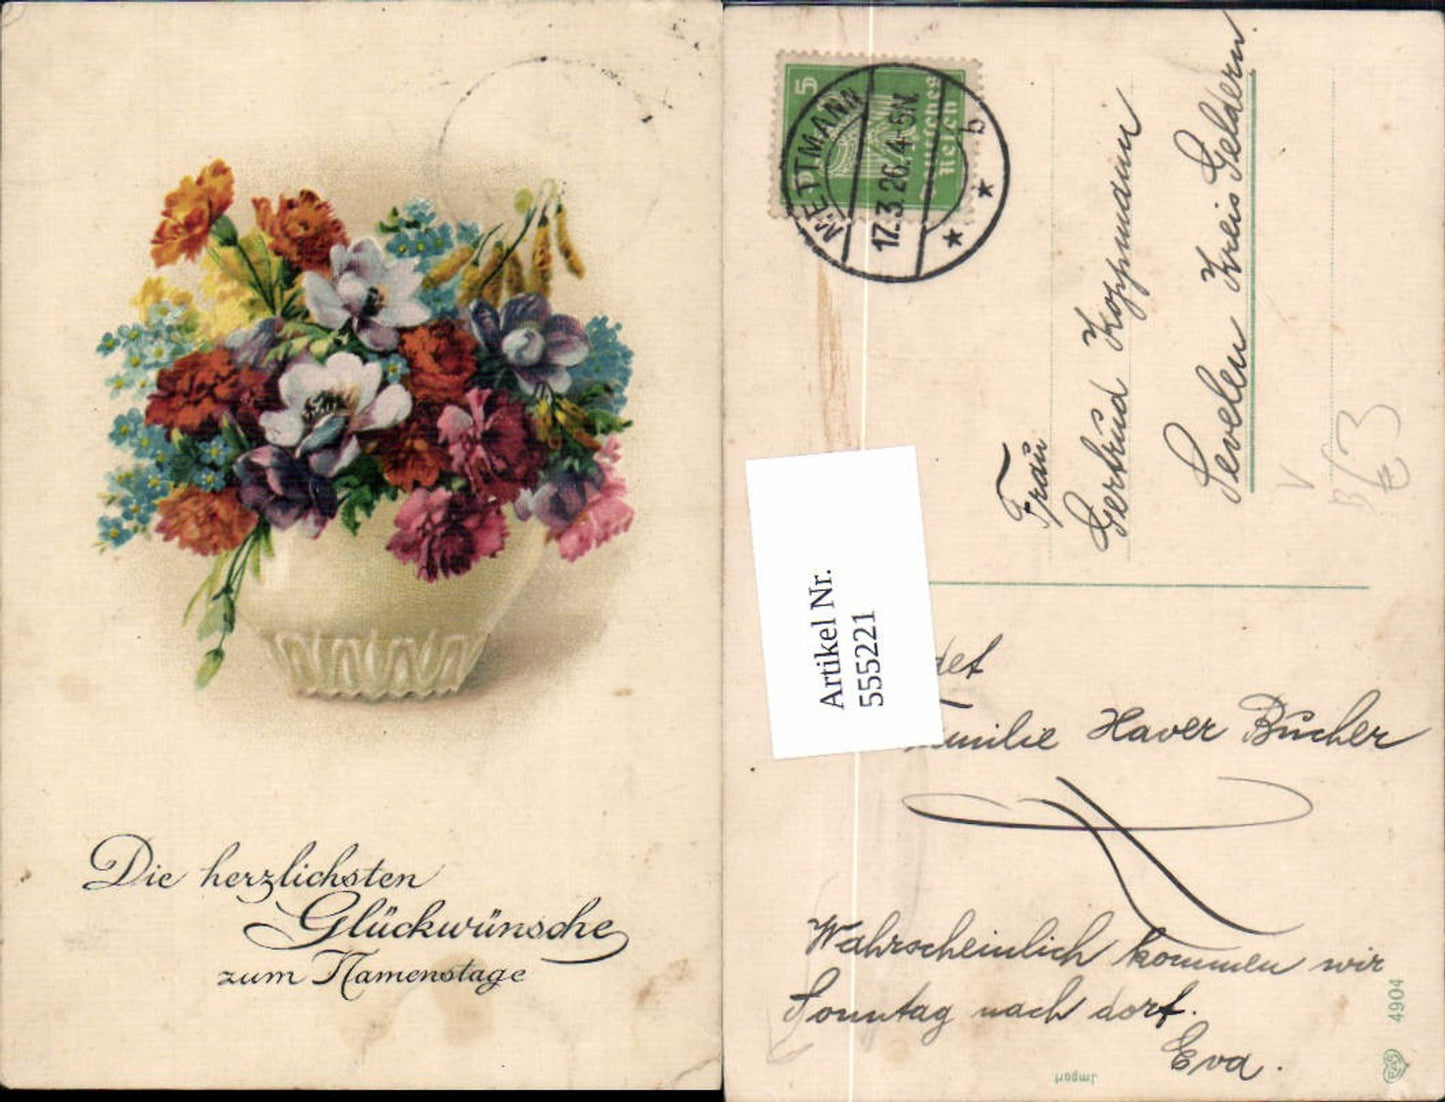 Die herzlichsten
Glückwünsche
zum Namenstage
5
Deutsches
Reich
METTMANN
17.3.26.4-5N.
b
Frau
Gertrud Koppmann
Sevelen Kreis Geldern.
Artikel Nr.
555221
det
Haver Bücher
Wahrscheinlich kommen wir
Sonntag nach dorf.
Eva.
Import
4904